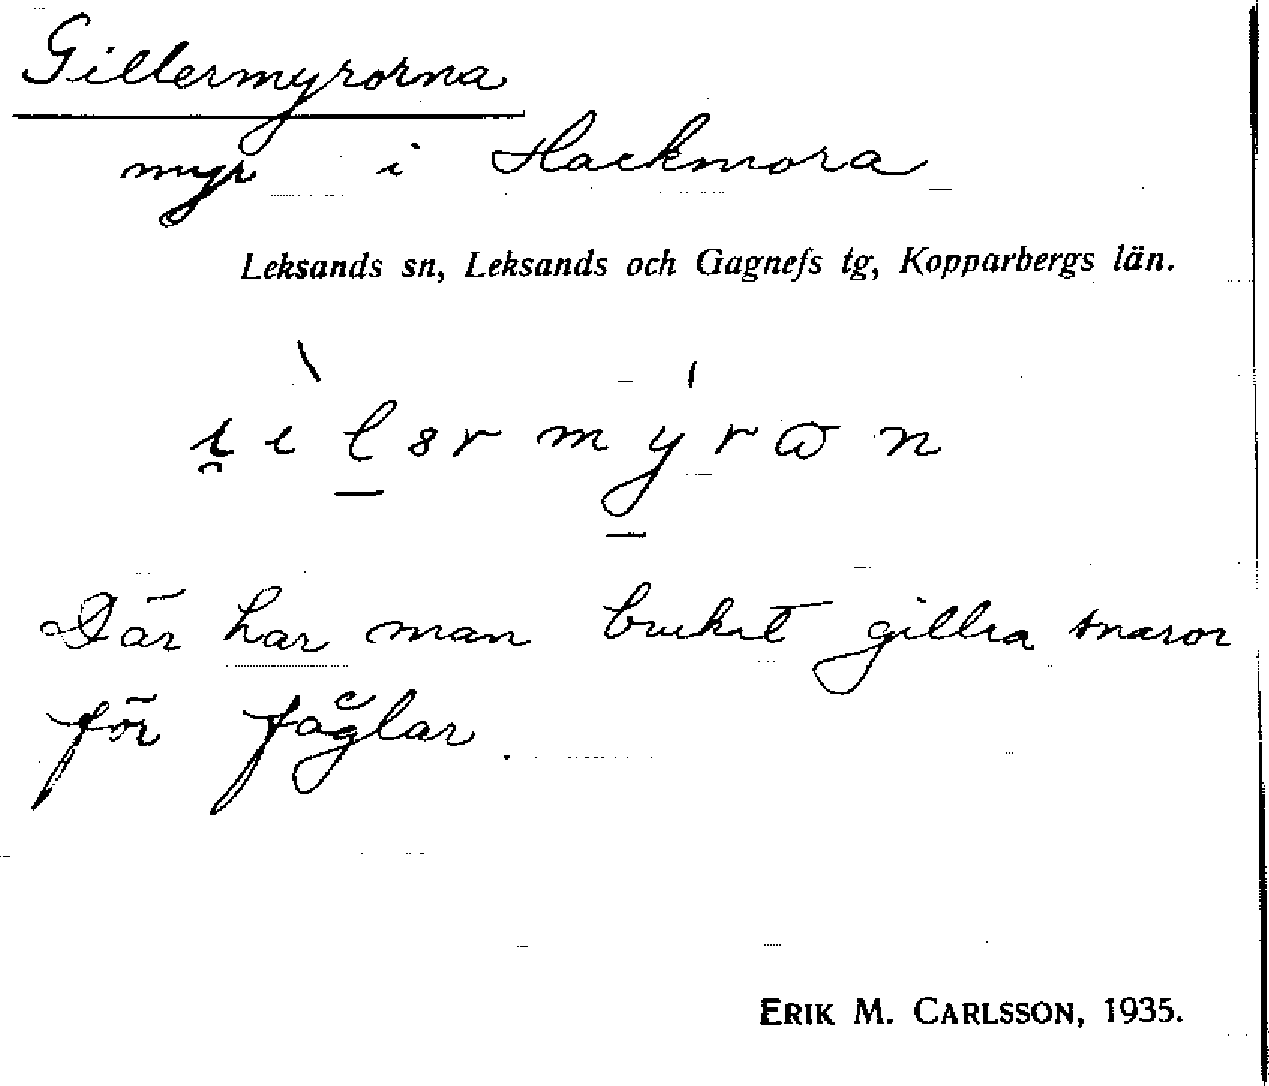 Gillermyrorna
myr i Hackmora
Leksands sn, Leksands och Gagnefs tg, Kopparbergs län.
Där har man brukat gillra snaror
för fåglar.
ERIK M. CARLSSON, 1935.